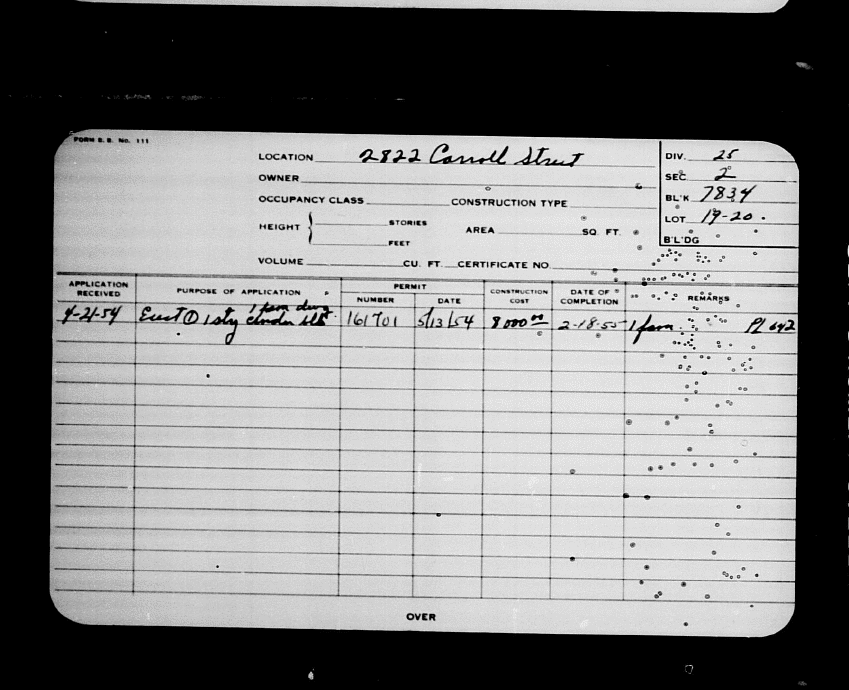 FORM B. B. No. 111
LOCATION 2822 Carroll Street
OWNER
OCCUPANCY CLASS CONSTRUCTION TYPE
HEIGHT STORIES FEET AREA SQ. FT.
VOLUME CU. FT. CERTIFICATE NO.
DIV. 25
SEC 2
BL'K 7834
LOT 19-20.
B'L'DG
APPLICATION RECEIVED PURPOSE OF APPLICATION PERMIT NUMBER DATE CONSTRUCTION COST DATE OF COMPLETION REMARKS
1 fam dwg
4-21-54 Erect ① 1 sty cinder blk 161701 5/13/54 8000 00 2-18-55 1 fam. Pl 642
OVER